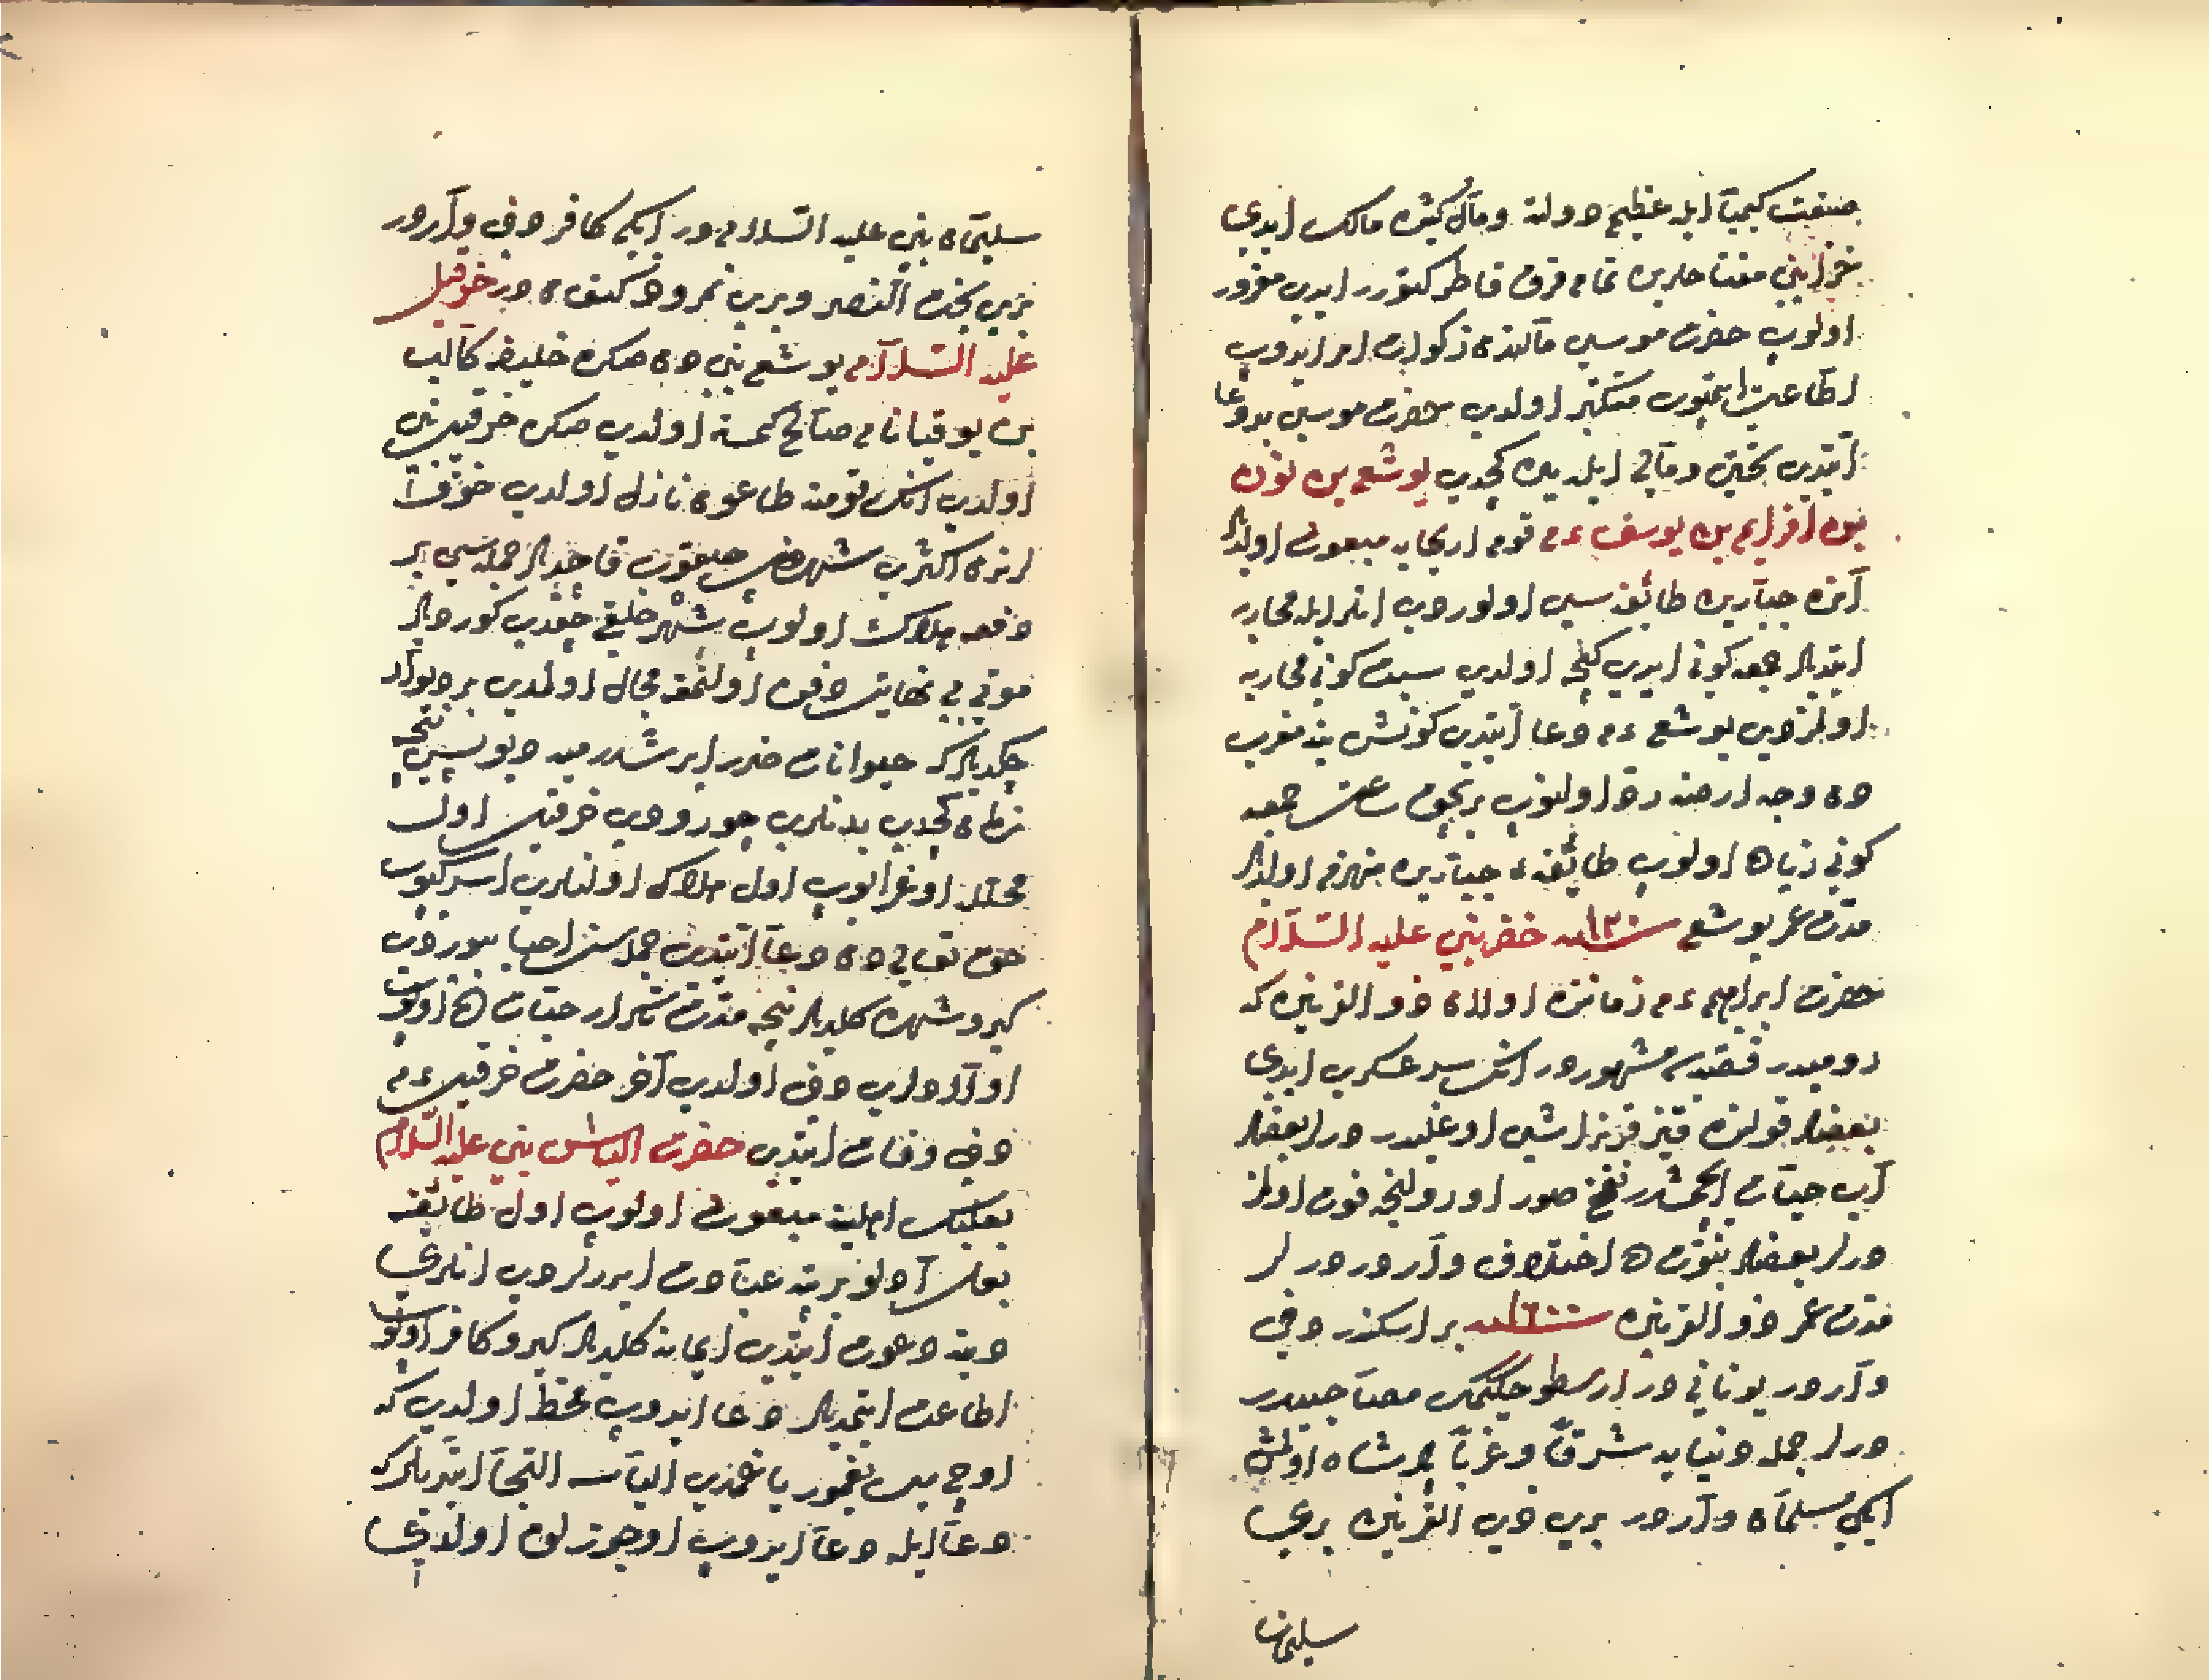 صنعت كيميا ايله عظيم دولته ومال كثيره مالك ايدى
خزاينى مفتاحلرين تمام قرق قاطر كتورر ايدى مغرور
اولوب حضرت موسى مالندن زكوات امر ايدوب
اطاعت ايتميوب متكبر اولدى حضرت موسى بد دعا
ايتدى تختى ومالى ايله يره كچدى يوشع بن نون
بن افرايم بن يوسف ءم قوم اريحايه مبعوث اولدى
آنده جبارين طائفه سى اولوردى انلر ايله محاربه
ايتديلر جمعه كونى ايدى كيجه اولدى سبت كونى محاربه
اولمزدى يوشع ءم دعا ايتدى كونش ينه مغرب
دن وجه ارضه رد اولنوب برقچ ساعت جمعه
كونى زياده اولوب طائفهء جبارين منهزم اولديلر
مدت عمر يوشع سنه ١٢٠ خضر نبى عليه السلام
حضرت ابراهيم ءم زماننده اولان ذو القرنين كه
روميدر قصه سى مشهوردر انك سر عسكرى ايدى
بعضلر قولنده قيز قرنداشى اوغليدر ديرلر بعضلر
آب حيات ايچمشدر نفخ صور اورولنجه فوت اولمز
ديرلر بعضلر نبوتنده اختلاف واردر ديرلر
مدت عمر ذو القرنين سنه ١٦٠٠ بر اسكندر دخى
واردر يونانى در ارسطو حكيمك مصاحبيدر
ديرلر جمله دنيايه شرقا وغربا پادشاه اولمش
ايكى مسلمان واردر برى ذى القرنين برى
سليمان
سليمان نبى عليه السلام در ايكى كافر دخى واردر
برى بخت النصر وبرى نمرود كنعاندر خزقيل
عليه السلام يوشع نبى دن صكره خليفه كالب
بن يوقنا نام صالح كمسه اولدى صكره خزقيل نبى
اولدى انك قومنه طاعون نازل اولدى خوفا
لرندن اكثرى شهردن چيقوب قاچديلر جمله سى بر
دفعه هلاك اولوب شهر خلقى چيقدى كورديلر
موتى بى نهايت دفن اولنمغه مجال اولمدى بر ديوار
چكديلر كه حيوانات ضرر ايرشدرميه ديو بر نيجه
زمان كچدى بدنلرى چوردى خزقيل اول
محله اوغرايوب اول هلاك اولنلرى اسركيوب
حق تعالى دن دعا ايتدى جمله سن احيا بيوردى
كيرو شهره كلديلر نيجه مدت بيله لر حياتده اولوب
اولادلرى دخى اولدى آخر حضرت خزقيل ءم
دخى وفات ايتدى حضرت الياس نبى عليه السلام
بعلبك اهلينه مبعوث اولوب اول طائفه
بعل آدلو بر بته عبادت ايدرلردى انلرى
دينه دعوت ايتدى ايمانه كلديلر كيرو كافر اولوب
اطاعت ايتمديلر دعا ايدوب قحط اولدى كه
اوچ يل يغمور ياغمدى الياسه التجا ايتديلر كه
دعا ايله دعا ايدوب اوجوزلق اولدى